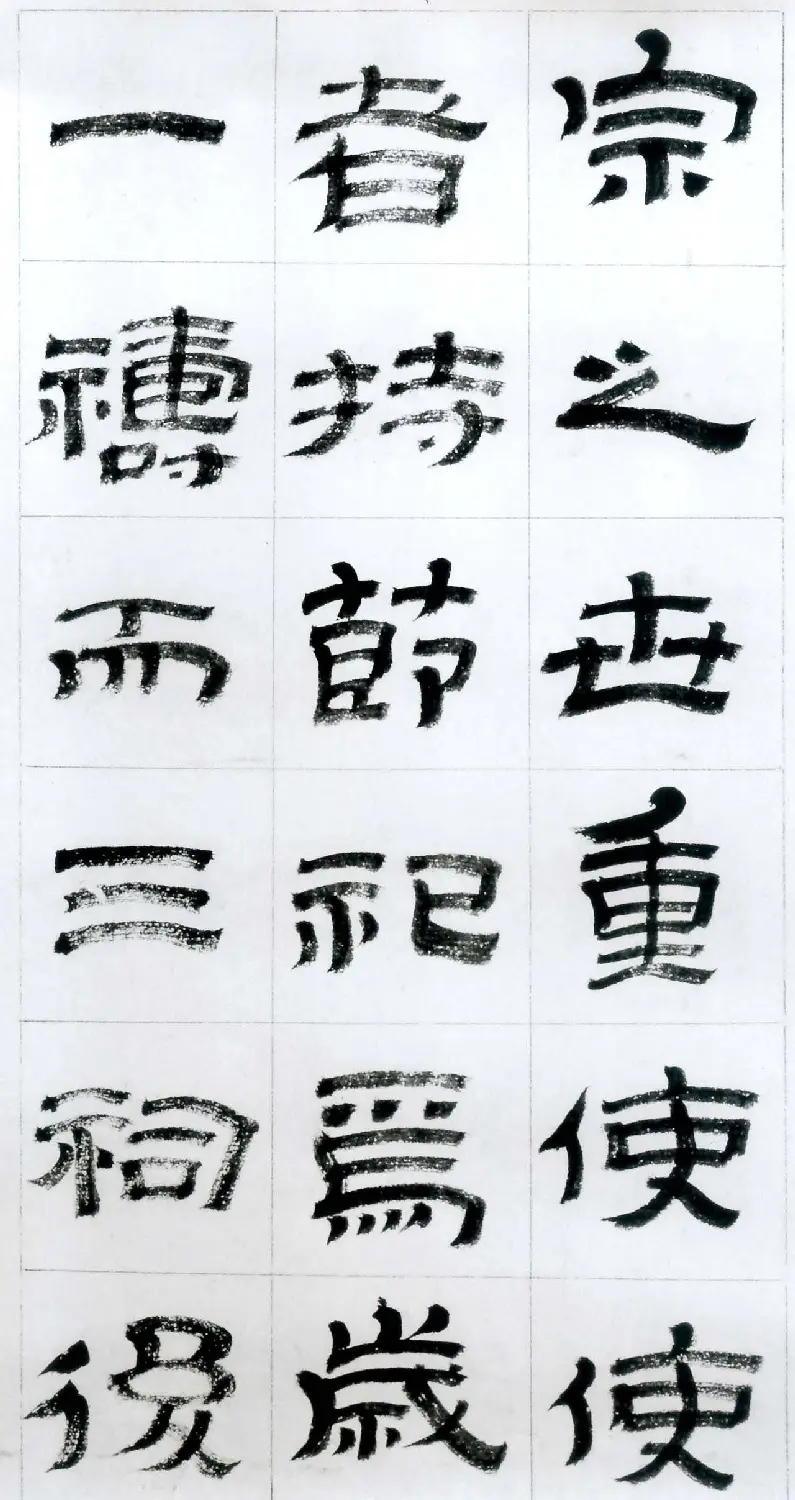 宗之世重使使
者持節祀爲歲
一禱而三祠後